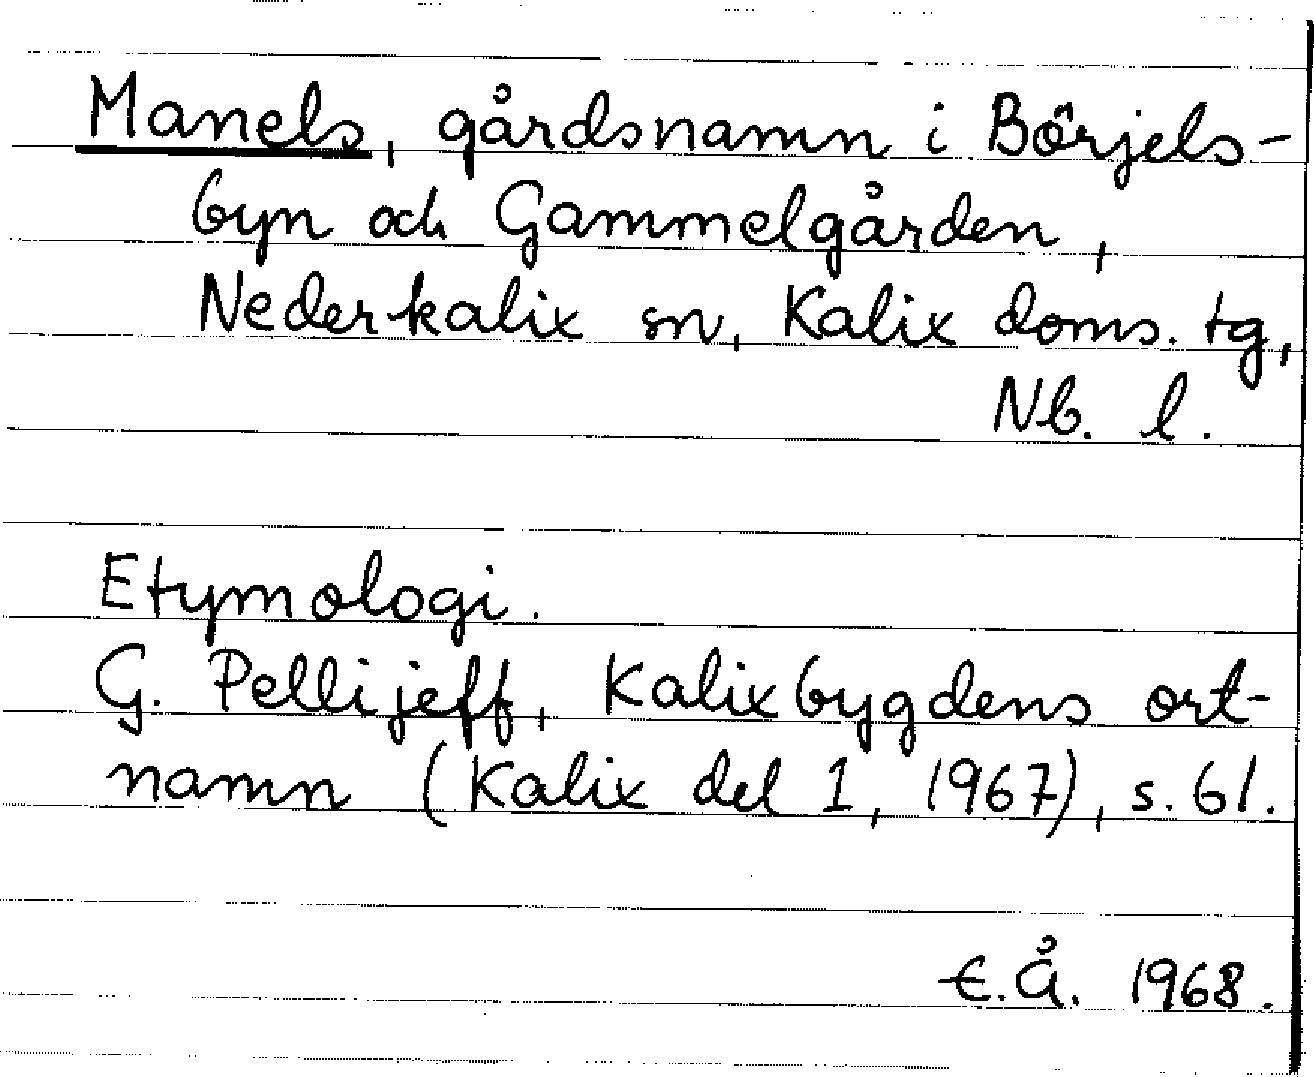 Manels, gårdsnamn i Börjels-
byn och Gammelgården,
Nederkalix sn, Kalix doms. tg,
Nb. l.
Etymologi.
G. Pellijeff, Kalixbygdens ort-
namn (Kalix del 1, 1967), s. 61.
E.Å. 1968.